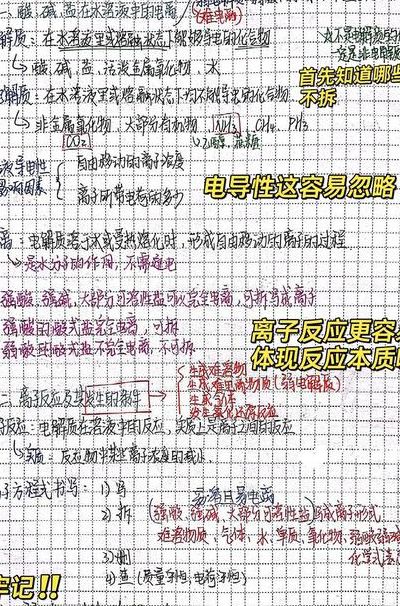 一、酸、碱、盐在水溶液中的电离
解质：在水溶液里或熔融状态下能够导电的化合物
↳酸、碱、盐、活泼金属氧化物、水
首先知道哪些
不拆
解质：在水溶液里或熔融状态下均不能导电的化合物
↳非金属氧化物、大部分有机物、NH3、CH4、PH3
CO2
↳乙醇、蔗糖
液导电性
影响因素
自由移动的离子浓度
离子所带电荷的多少
电导性这容易忽略
离：电解质溶于水或受热熔化时，形成自由移动的离子的过程
↳是水分子的作用，不需通电
强酸、强碱、大部分可溶性盐可以完全电离，可拆写成离子
强酸的酸式盐完全电离，可拆
弱酸酸式盐不完全电离，不可拆
离子反应更容
体现反应本质
生成难溶物
生成难电离物质（弱电解质）
二、离子反应及其发生的条件
生成气体
发生氧化还原反应
反应：电解质在溶液中的反应，实质上是离子之间的反应
↳实质：反应物中某些离子浓度的减小
子方程式书写：1)写
易溶且易电离
2)拆（强酸、强碱、大部分可溶性盐）写成离子形式
难溶物质、气体、水、单质、氧化物、弱酸弱碱
化学式表
3)删
4)查（质量守恒，电荷守恒）
牢记!!